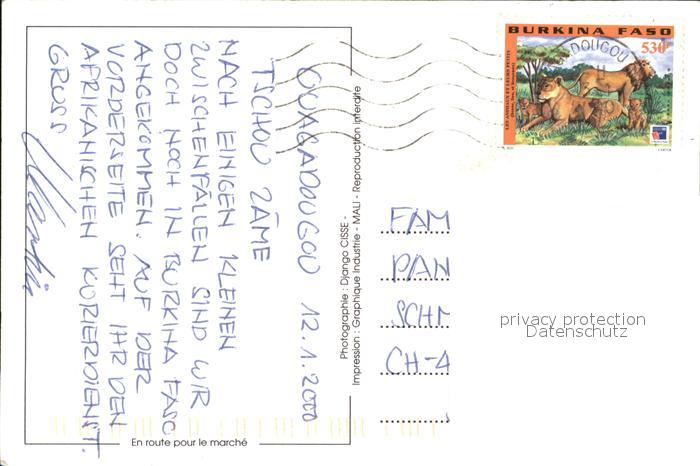 OUAGADOUGOU 12.1.2000
TSCHOU ZÄME
NACH EINIGEN KLEINEN
ZWISCHENFÄLLEN SIND WIR
DOCH NOCH IN BURKINA FASO
ANGEKOMMEN. AUF DER
VORDERSEITE SEHT IHR DEN
AFRIKANISCHEN KURIERDIENST.
GRUSS
En route pour le marché
Photographie : Django CISSE -
Impression : Graphique Industrie - MALI - Reproduction interdite
BURKINA FASO
530F
DOUGOU
LES ANIMAUX ET LEURS PETITS
FAM
PAN
SCHM
CH-4
privacy protection
Datenschutz